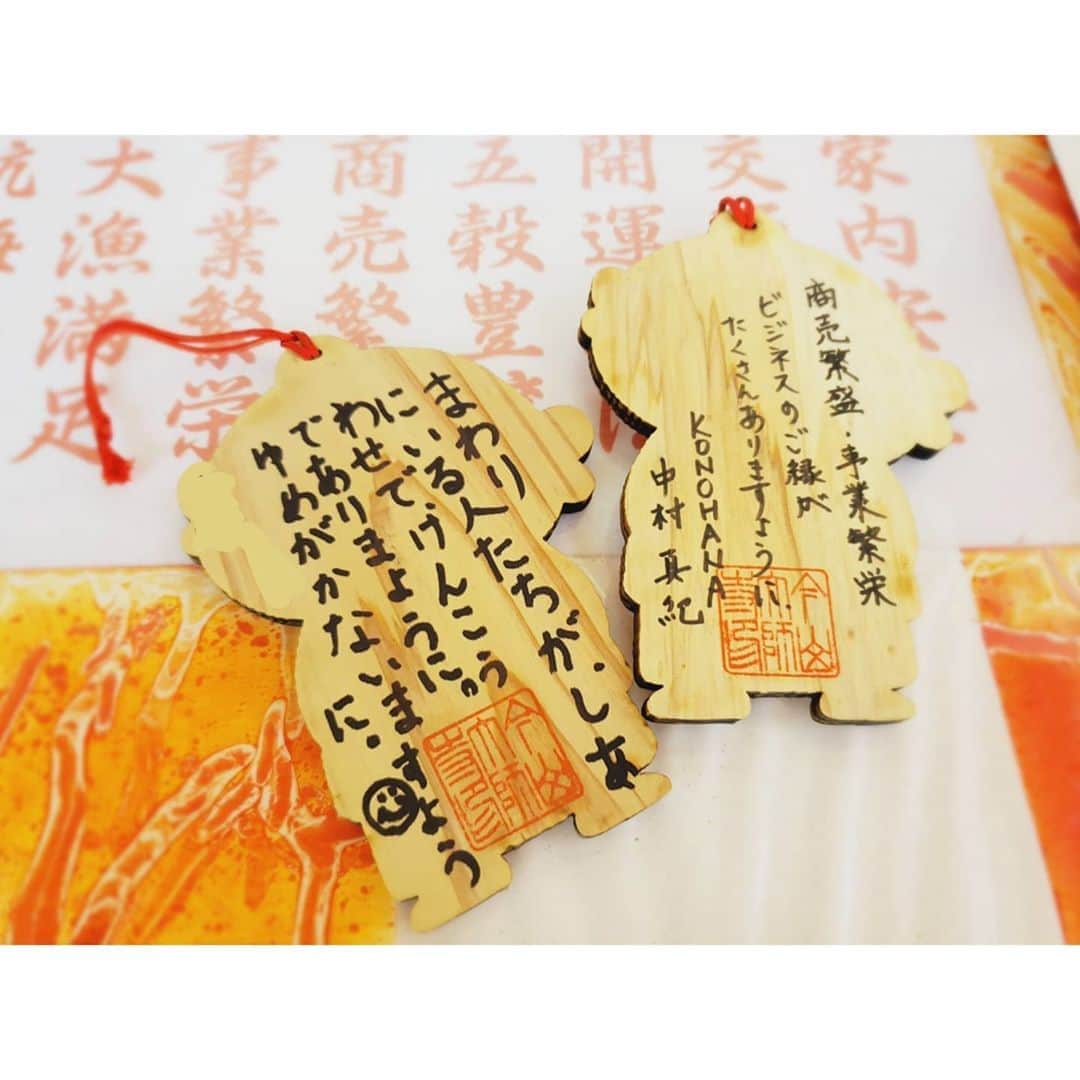 家内安
交
開運
五穀豊
商売繁
事業繁栄
大漁満足
商売繁盛・事業繁栄
ビジネスのご縁が
たくさんありますように、
KONOHANA
中村真紀
今山大師寺印
まわり
にいる人たちが、しあ
わせで、けんこう
でありまように。
ゆめがかないますよう
に、
今山大師寺印